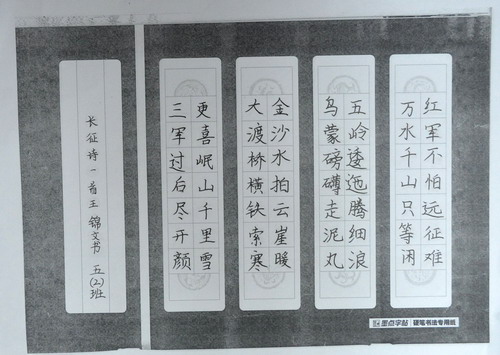 红军不怕远征难
万水千山只等闲
五岭逶迤腾细浪
乌蒙磅礴走泥丸
金沙水拍云崖暖
大渡桥横铁索寒
更喜岷山千里雪
三军过后尽开颜
长征诗一首王锦文书 五(2)班
墨点字帖 硬笔书法专用纸